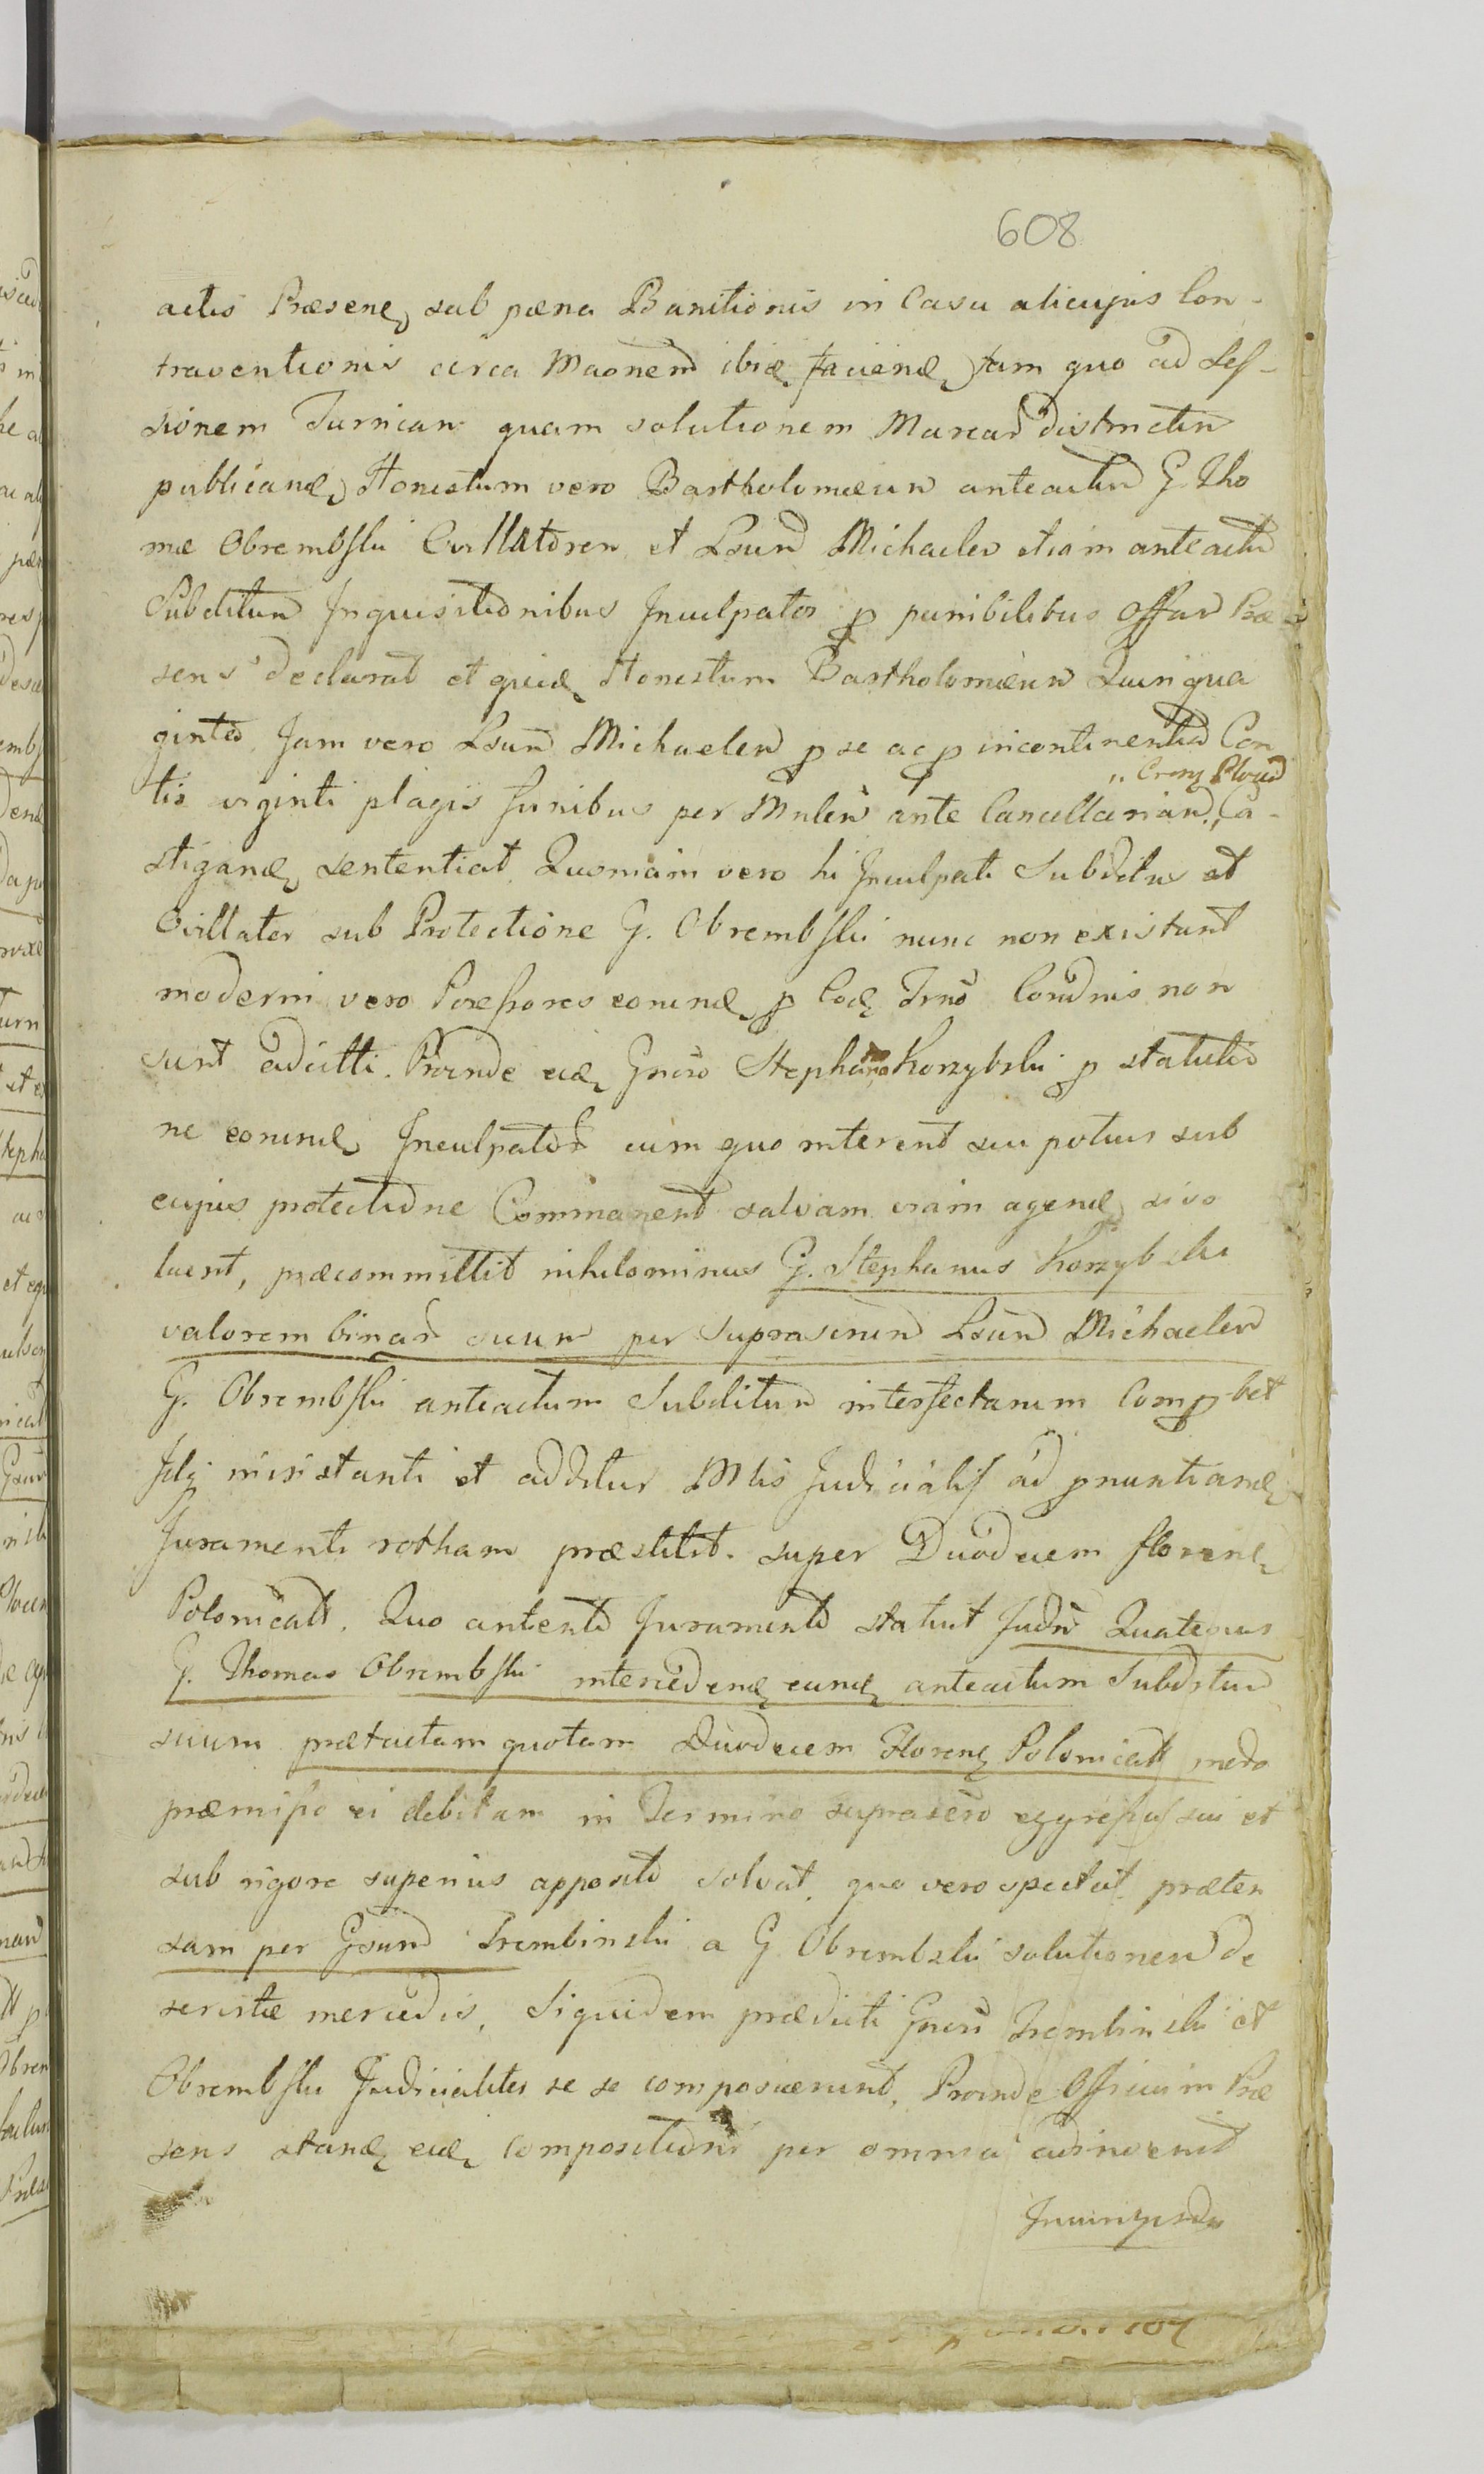 608
actis Præsene, sub pæna Banitionis in Casu alicujus Con-
traventionis circa Maonem ibiæ faciene, tam quo ad Ses-
sionem Turricam quam solutionem Marcar distinctim
publicane, Honestum vero Bartholomæum anteactum G. Tho
mæ Obrembski Ovillatorem et Lsum Michaelem etiam anteactu
Subditum Inquisitionibus Inculpatos p punibilibus Offum Præ
sens declarat et quide Honestum Bartholomæum Quinqua
ginta, Jam vero Lsum Michaelem p se ac p incontinentia Cen
,, Creny Plocen
tis viginti plagis funibus per Mnlem ante Cancellariam,, Ca-
stigane, sententiat. Quoniam vero hi Inculpati Subditus et
Ovillator sub Protectione G. Obrembski nunc non existunt
moderni vero Possessores eorunde p Eode Trno Condnis non
sunt adcitti. Proinde eide Gnoso Stephano Korzybski p statutio
ne eorunde Inculpator cum quo interent seu potius sub
cujus protectione Commanent salvam viam agene, si vo
luent, præcommittit nihilominus G. Stephanus Korzybski
valorem binar suum per suprascrium Lsum Michaelem
G. Obrembski anteactum Subditum interfectarum Comp bet
Idq insistanti et additur Mlis Judicialis ad pnuntiane
Juramenti rotham præstitit. super Duodecem florene
Polonicalt. Quo antento Juramento statuit Judm Quatenus
G. Thomas Obrembski intercedene eunde anteactum Subditum
suum prætactam quotam Duodecem Florene Polonicalt modo
præmisso ei debitam in Termino suprascro eggressus sui et
sub rigore superius apposito solvat, quo vero spectat præten
sam per Gsum Trembinski a G. Obrembski solutionem de
servitæ mercedis, Siquidem prædicti Gnosi Trembinski et
Obrembski Judicialiter se se composuerunt, Proinde Officium Præ
sens stane eide Compositioni per omnia adinvenit